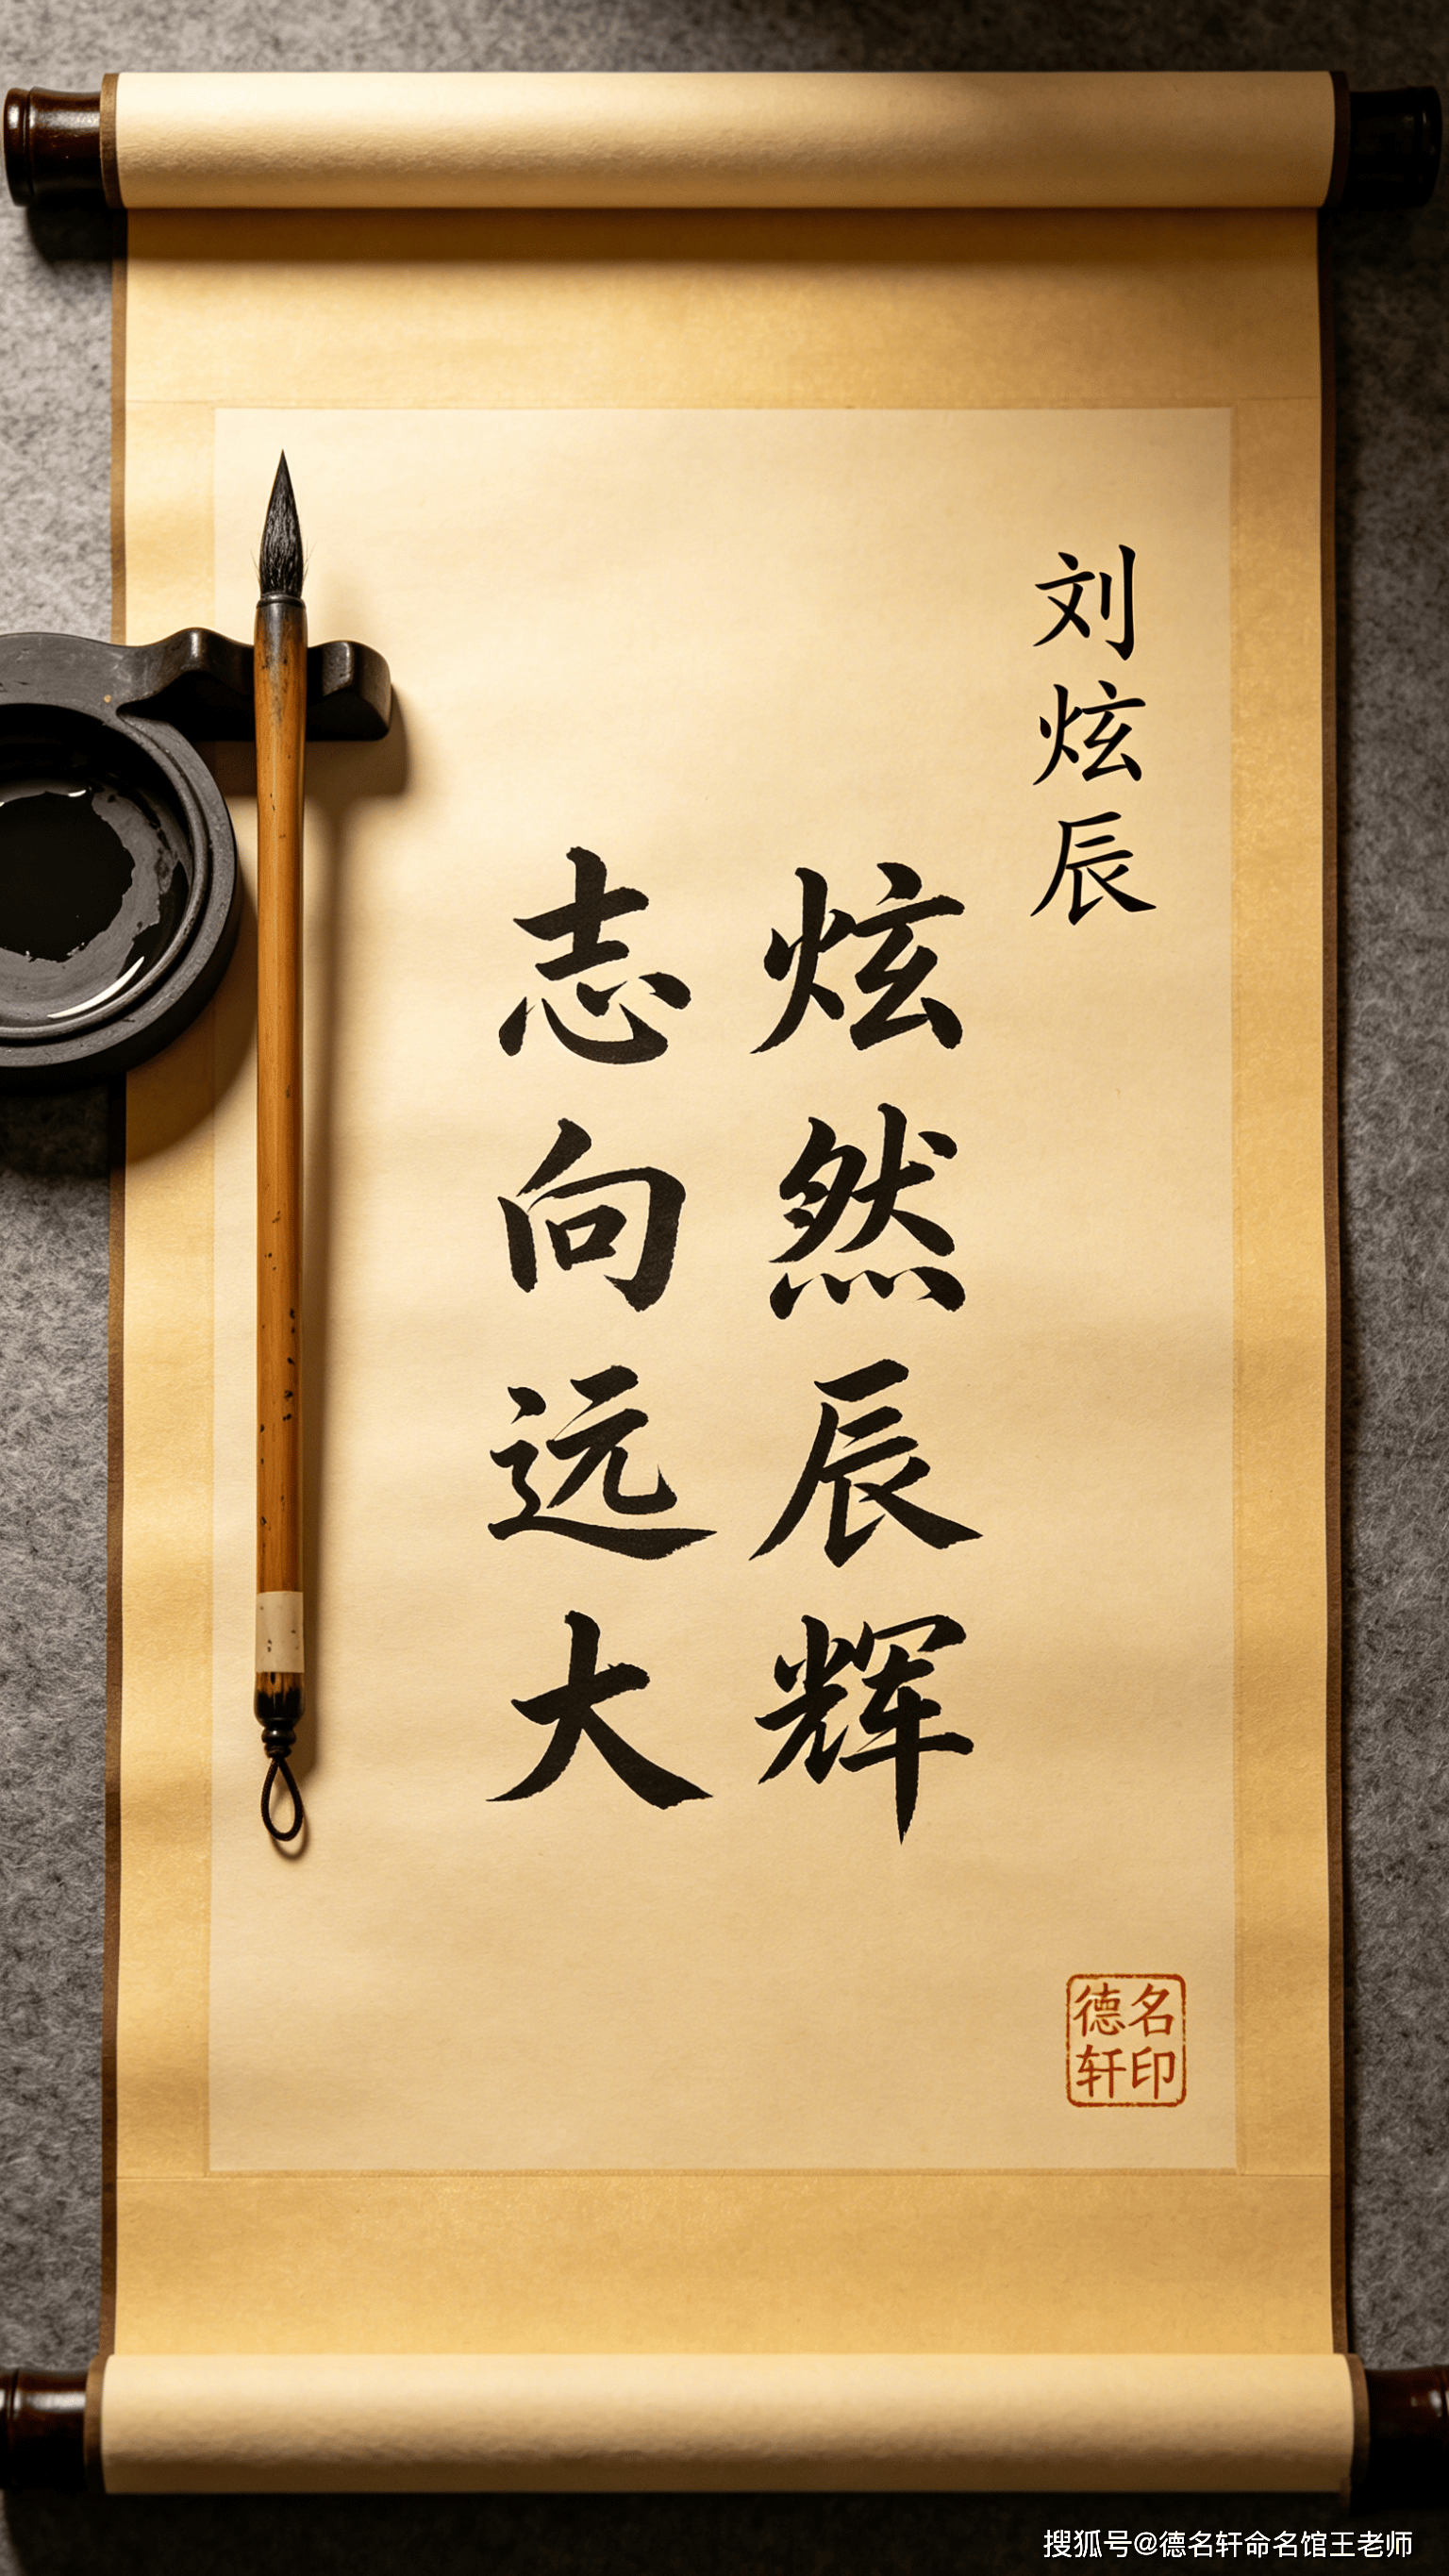 刘炫辰
炫然辰辉
志向远大
德名
轩印
搜狐号@德名轩命名馆王老师